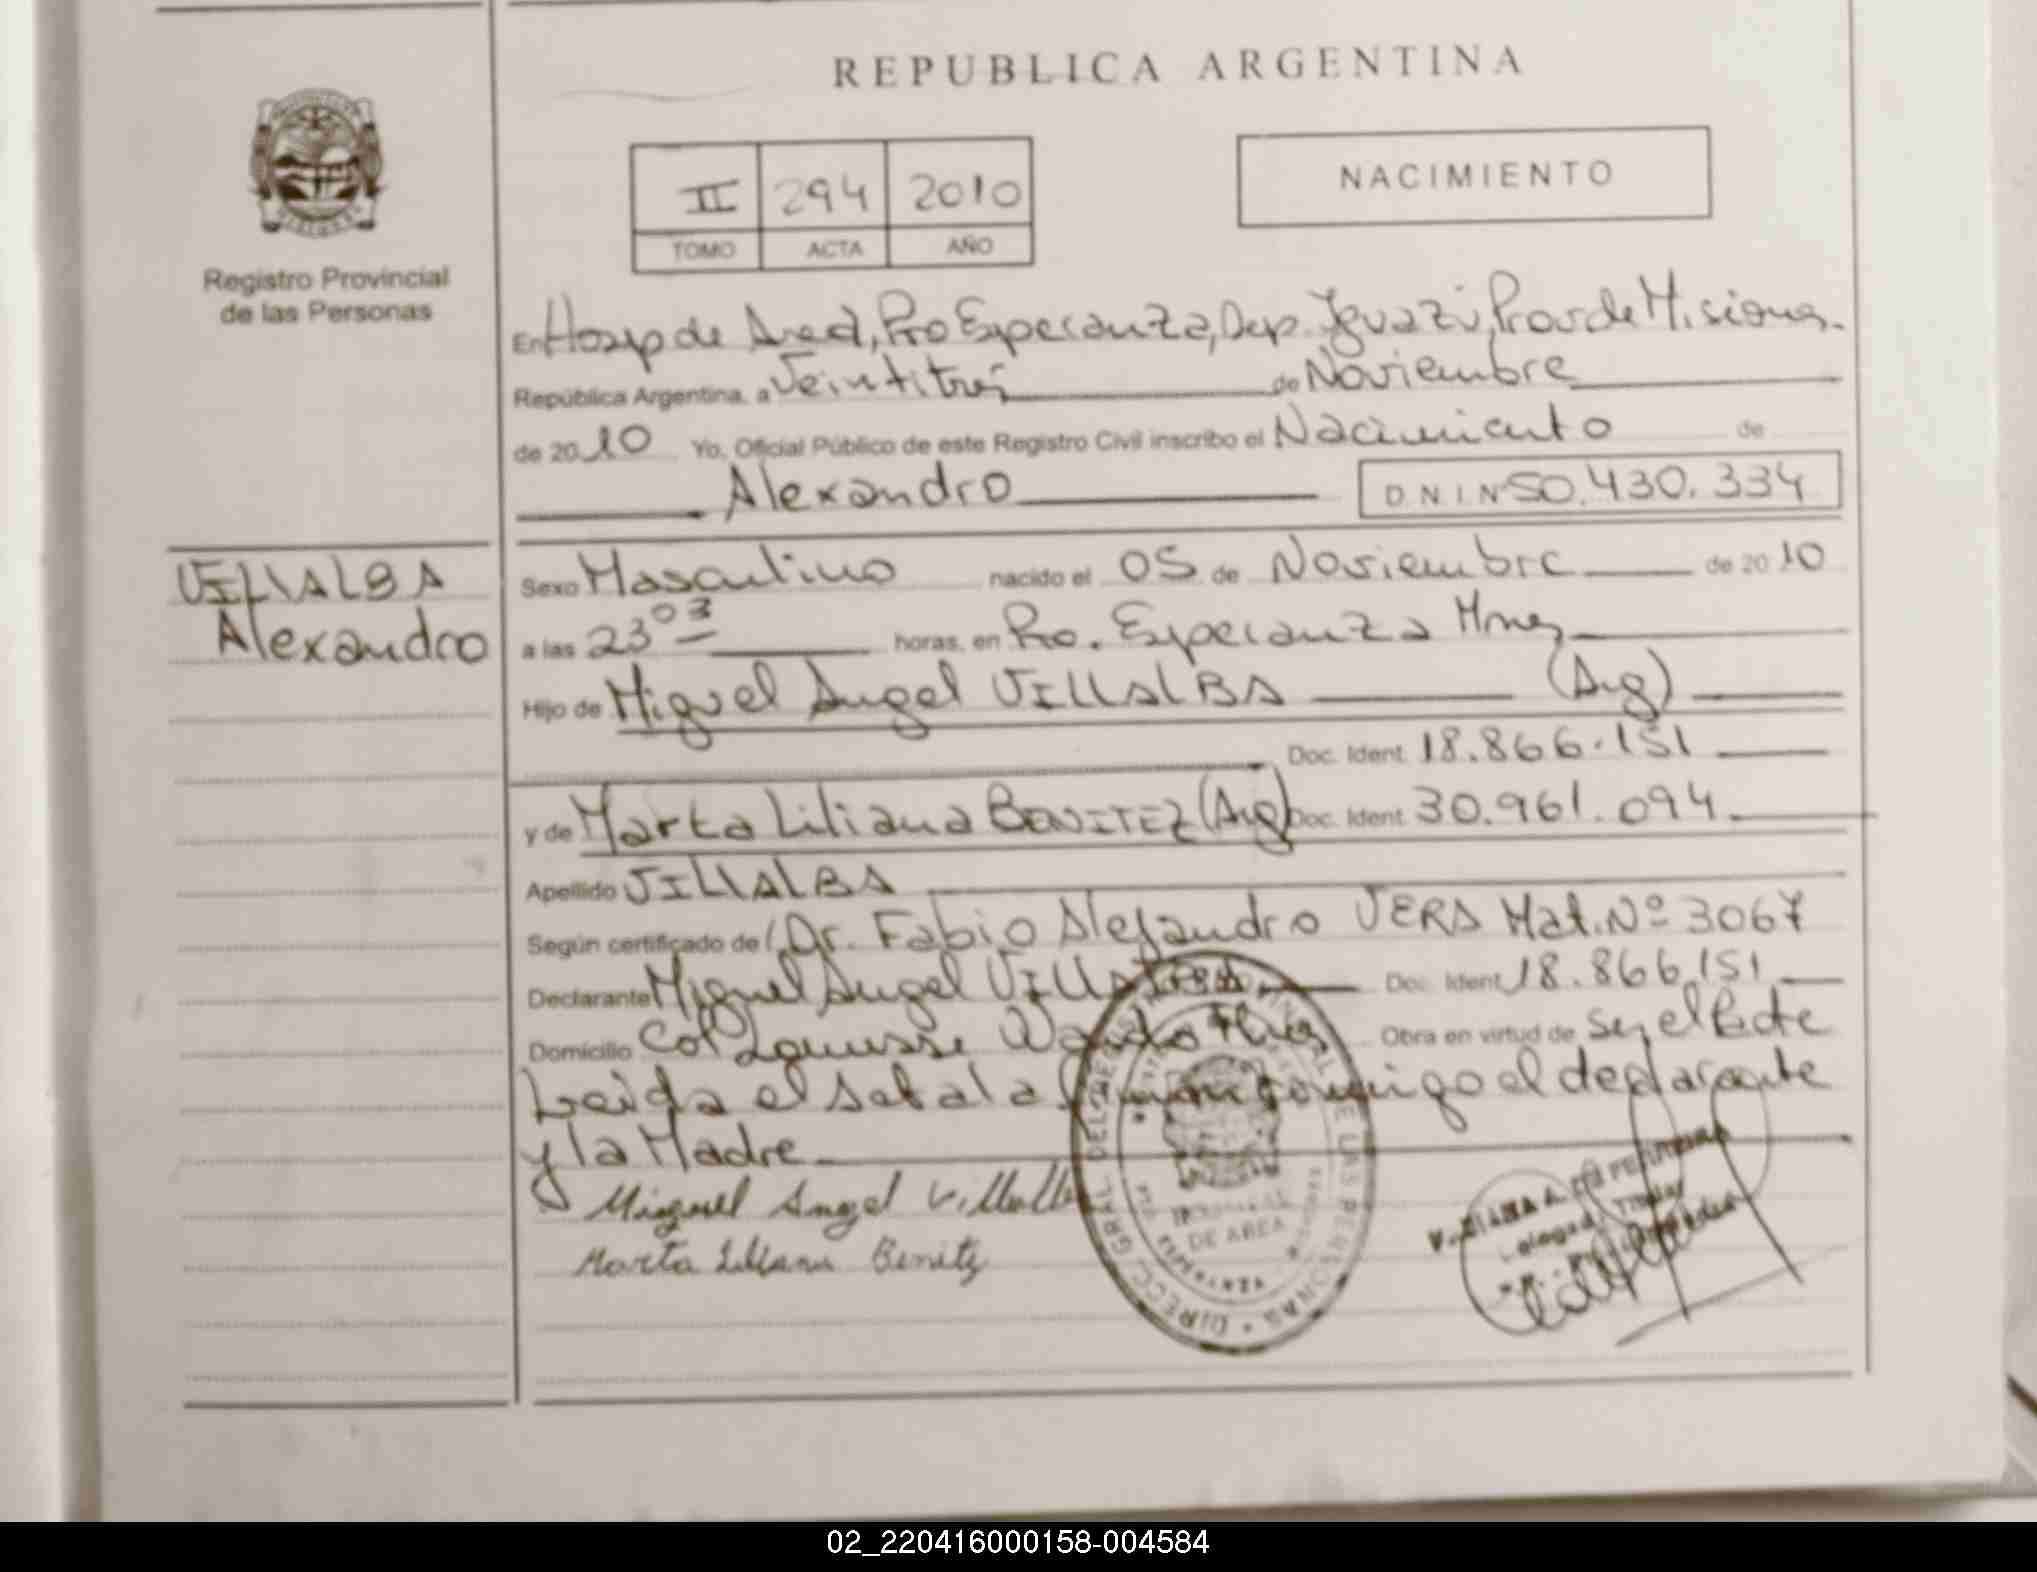 REPUBLICA ARGENTINA
Registro Provincial
de las Personas
II 294 2010
TOMO ACTA AÑO
NACIMIENTO
En Hosp de Area, Pto Esperanza, Dep. Iguazú, Prov de Misiones.
República Argentina, a Veintitrés de Noviembre
de 2010 Yo, Oficial Público de este Registro Civil inscribo el Nacimiento de
Alexandro D.N.I.Nº 50.430.334
VILLALBA
Alexandro
Sexo Masculino nacido el 05 de Noviembre de 2010
a las 23 03 horas, en Pto. Esperanza Mnes
Hijo de Miguel Angel VILLALBA (Arg)
Doc. Ident. 18.866.151
y de Marta Liliana BENITEZ (Arg) Doc. Ident. 30.961.094
Apellido VILLALBA
Según certificado de Dr. Fabio Alejandro VERA Mat. Nº 3067
Declarante Miguel Angel VILLALBA Doc. Ident. 18.866.151
Domicilio Col Wanda Mnes Obra en virtud de ser el Padre
Leída el acta la firman conmigo el declarante
y la Madre
Miguel Angel Villalba
Marta Liliana Benitez
DIRECC. GRAL. DEL REGISTRO PROVINCIAL DE LAS PERSONAS
HOSPITAL
DE AREA
02_220416000158-004584